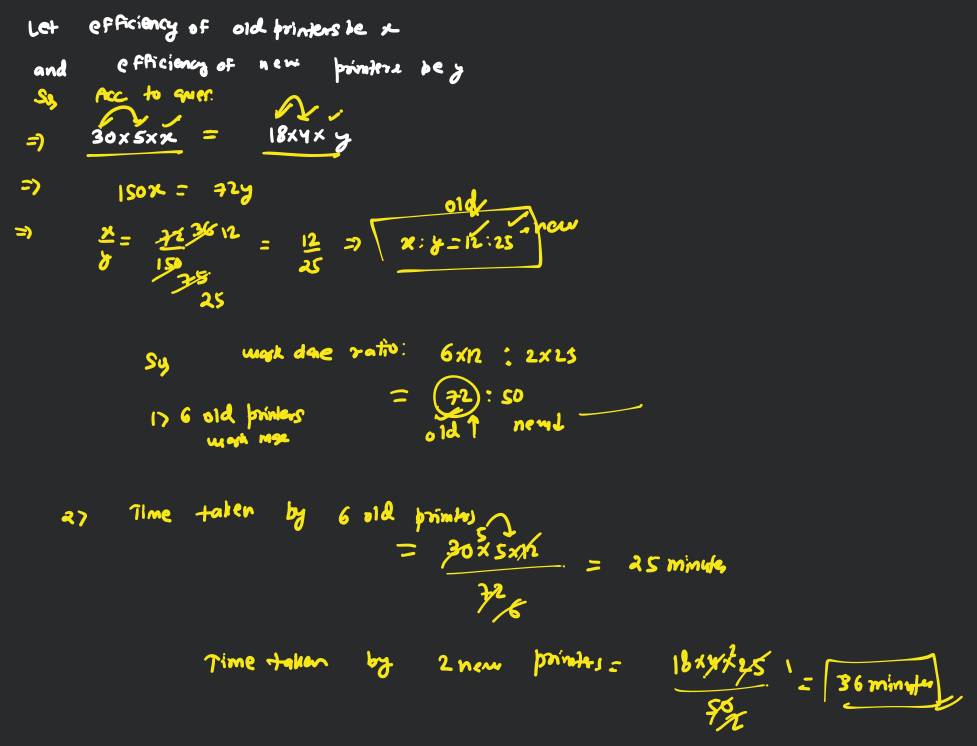 Let efficiency of old printers be x
and efficiency of new printers be y
So, Acc to ques.
⇒ 30x5xx = 18x4x y
⇒ 150x = 72y
⇒ x/y = 72 36 12 / 150 75 25 = 12/25 ⇒ x : y = 12 : 25
old new
So work done ratio: 6x12 : 2x25
= 72 : 50
old ↑ new ↓
1> 6 old printers
work more
2> Time taken by 6 old printers
= 30 5 x 5x12 / 72 6 = 25 minutes
Time taken by 2 new printers = 18x4 2 x25 1 / 50 2 = 36 minutes